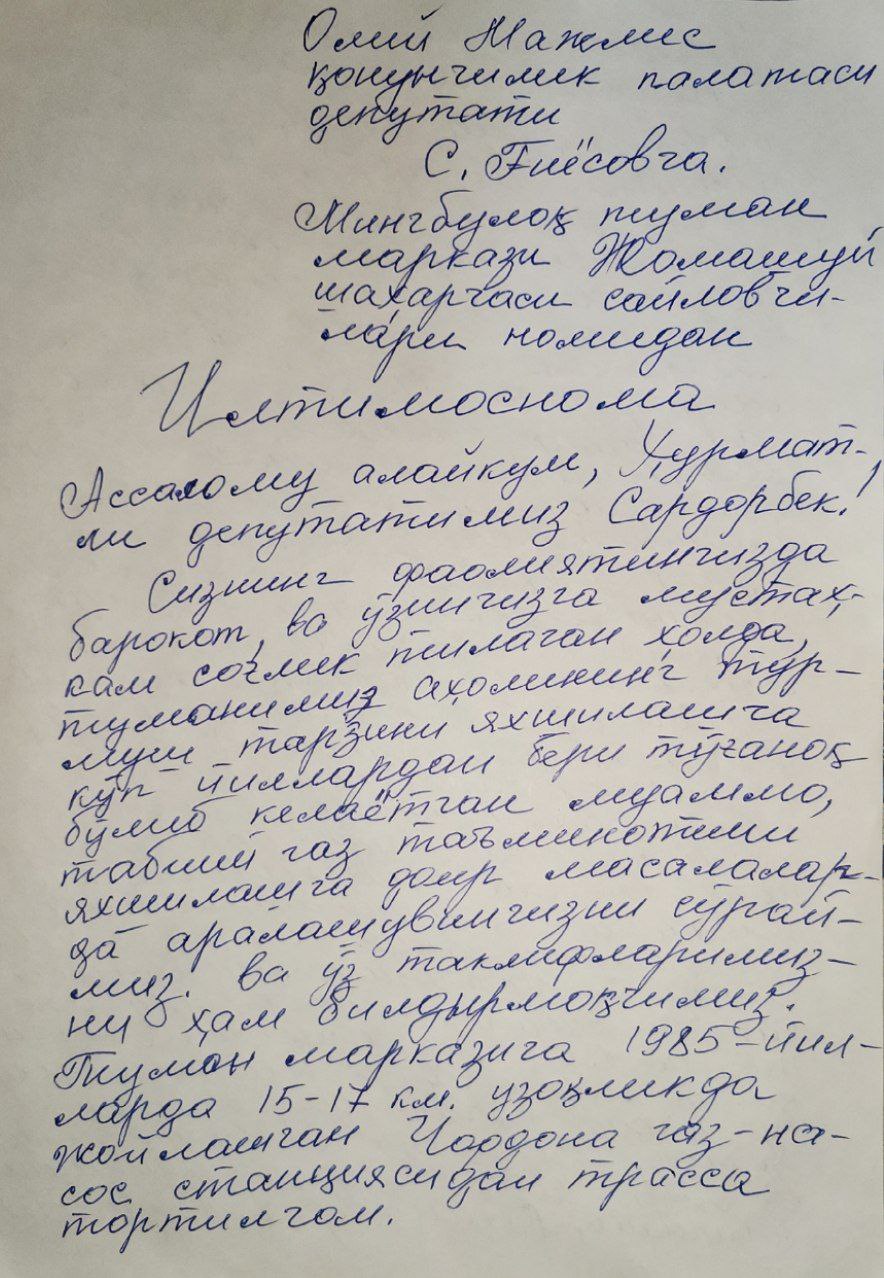 Олий Мажлис
қонунчилик палатаси
депутати
С. Ғиёсовга.
Мингбулоқ туман
маркази Жомашуй
шахарчаси сайловчи-
лари номидан
Илтимоснома
Ассалому алайкум, Ҳурмат-
ли депутатимиз Сардорбек!
Сизнинг фаолиятингизда
барокот, ва ўзингизга мустаҳ-
кам соғлик тилаган ҳолда,
туманимиз аҳолининг тур-
муш тарзини яхшилашга
кўп йиллардан бери тўғаноқ
бўлиб келаётган муаммо,
табиий газ таъминотини
яхшилашга доир масалалар-
да аралашувингизни сўрай-
миз. ва ўз таклифларимиз-
ни ҳам билдирмоқчимиз.
Туман марказига 1985-йил-
ларда 15-17 км. узоқликда
жойлашган Чордона газ-на-
сос станциясидан трасса
тортилган.